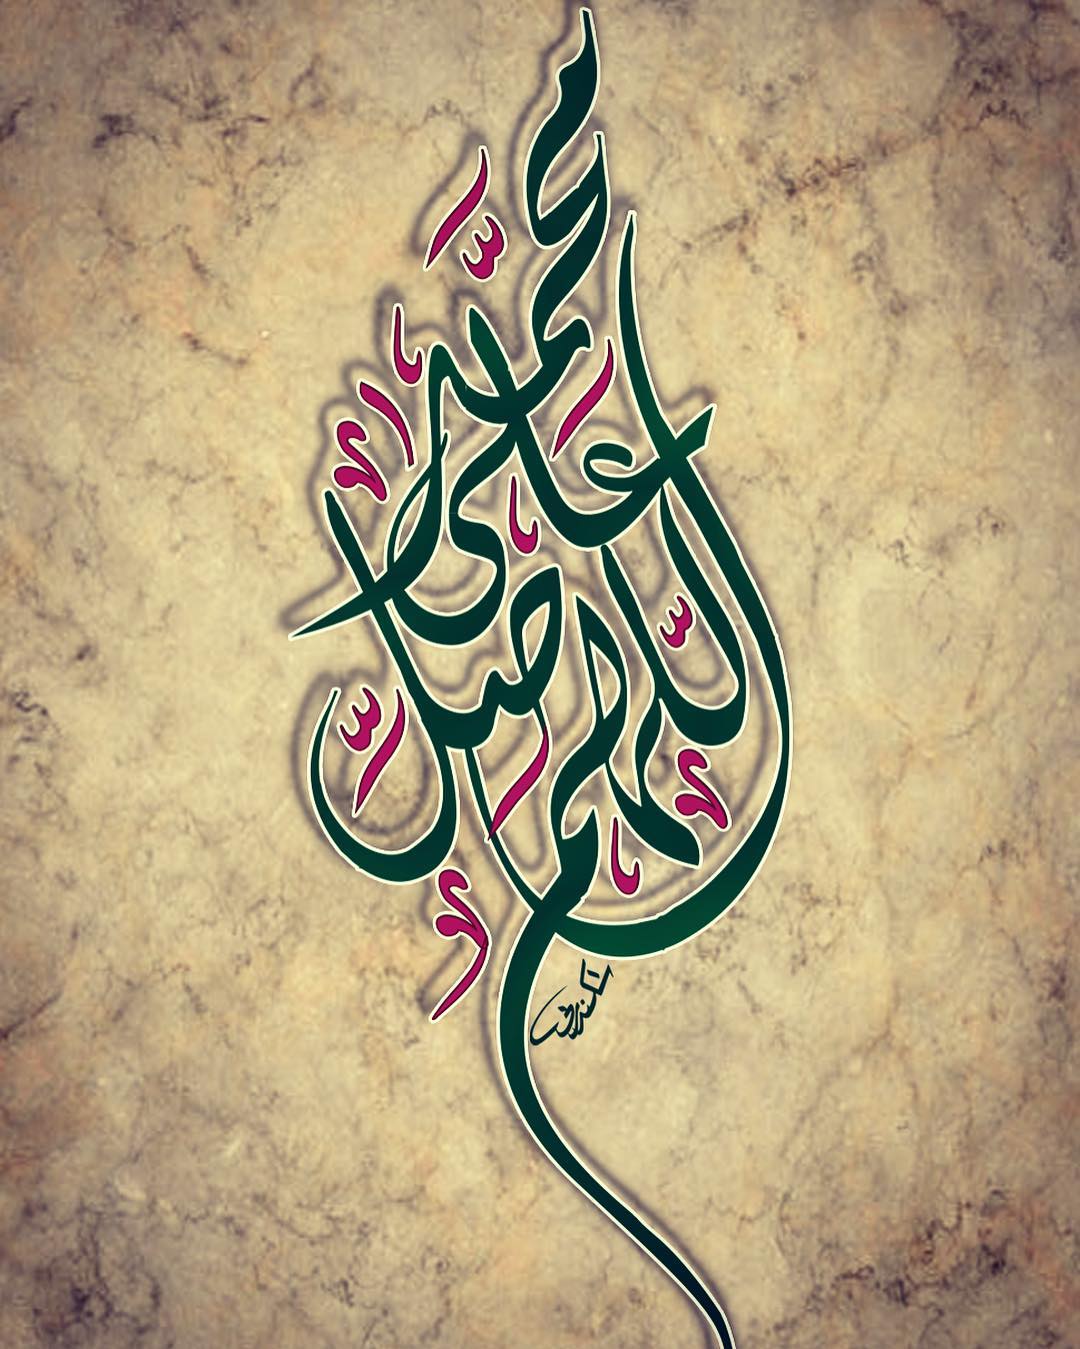 اللّهم صلّ على محمّد